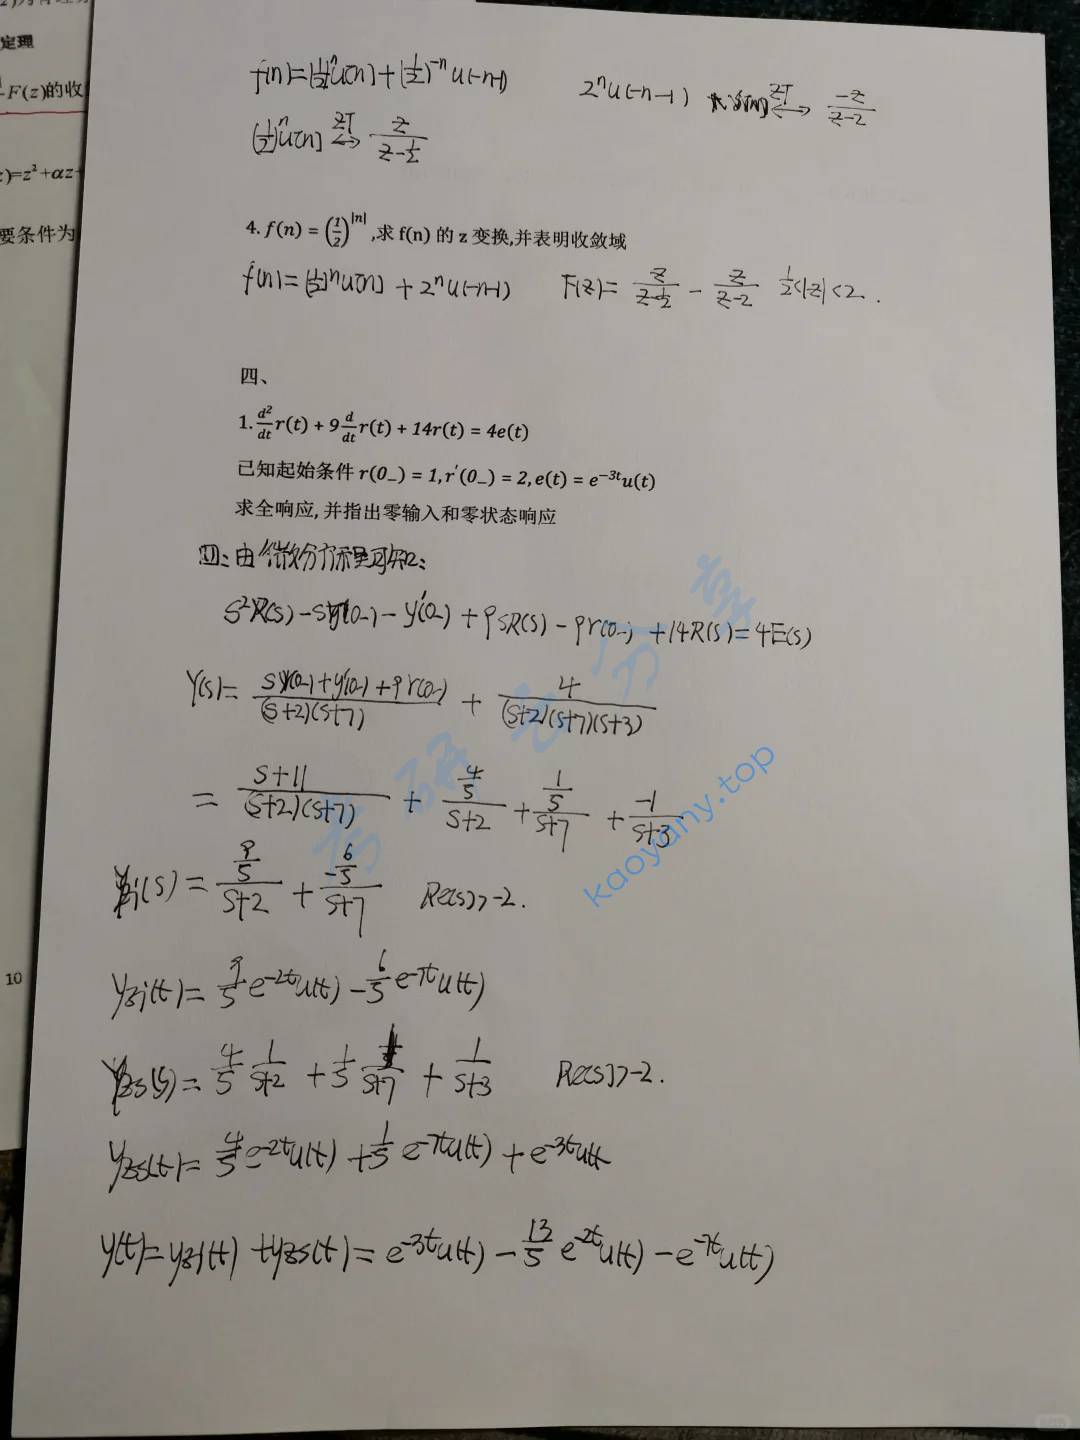 定理
F(z)的收
z)=z²+αz+
要条件为
10
f(n)=(1/2)ⁿu[n]+(1/2)⁻ⁿu(-n-1)
2ⁿu(-n-1) ZT ⟷ -z/(z-2)
(1/2)ⁿu[n] ZT ⟷ z/(z-1/2)
4. f(n) = (1/2)^|n| ,求 f(n) 的 z 变换,并表明收敛域
f(n)=(1/2)ⁿu[n] + 2ⁿu(-n-1) F(z)= z/(z-1/2) - z/(z-2) 1/2<|z|<2 .
四、
1. d²/dt r(t) + 9 d/dt r(t) + 14r(t) = 4e(t)
已知起始条件 r(0₋) = 1, r′(0₋) = 2, e(t) = e⁻³ᵗu(t)
求全响应, 并指出零输入和零状态响应
四: 由微分方程可知:
S²R(s)-Sy(0₋)-y′(0₋)+9SR(s)-9r(0₋)+14R(s)=4E(s)
Y(s)= (Sy(0₋)+y′(0₋)+9r(0₋))/((S+2)(S+7)) + 4/((S+2)(S+7)(S+3))
= (S+11)/((S+2)(S+7)) + (4/5)/(S+2) + (1/5)/(S+7) + (-1)/(S+3)
Yzi(s) = (9/5)/(S+2) + (-6/5)/(S+7) Re(s)>-2.
yzi(t)= 9/5 e⁻²ᵗu(t) - 6/5 e⁻⁷ᵗu(t)
Yzs(s)= 4/5 1/(S+2) + 1/5 1/(S+7) + 1/(S+3) Re(s)>-2.
yzs(t)= 4/5 e⁻²ᵗu(t) + 1/5 e⁻⁷ᵗu(t) + e⁻³ᵗu(t
y(t)=yzi(t) +yzs(t)= e⁻³ᵗu(t) - 13/5 e⁻²ᵗu(t) - e⁻⁷ᵗu(t)
考研云分享
kaoyany.top